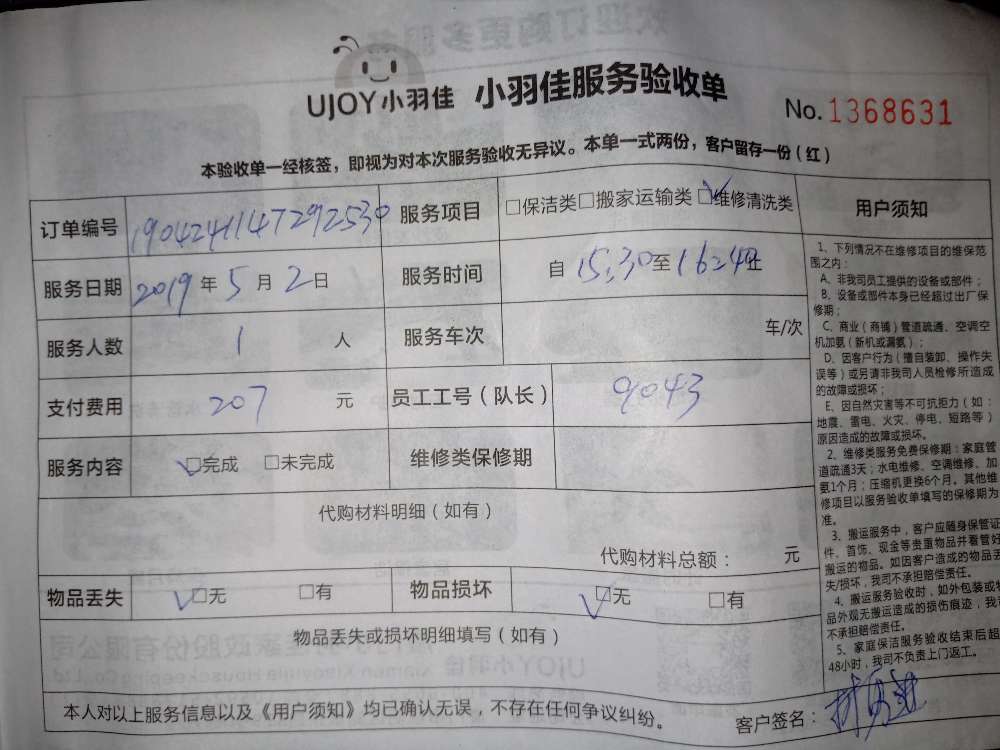 UJOY小羽佳 小羽佳服务验收单
No.1368631
本验收单一经核签，即视为对本次服务验收无异议。本单一式两份，客户留存一份（红）
订单编号 1904241147292530 服务项目 □保洁类□搬家运输类□维修清洗类
服务日期 2019年5月2日 服务时间 自15:30至16:24止
服务人数 1 人 服务车次 车/次
支付费用 207 元 员工工号（队长） 9043
服务内容 □完成 □未完成 维修类保修期
代购材料明细（如有）
代购材料总额： 元
物品丢失 □无 □有 物品损坏 □无 □有
物品丢失或损坏明细填写（如有）
本人对以上服务信息以及《用户须知》均已确认无误，不存在任何争议纠纷。 客户签名：
用户须知
1、下列情况不在维修项目的维保范
围之内：
A、非我司员工提供的设备或部件；
B、设备或部件本身已经超过出厂保
修期；
C、商业（商铺）管道疏通、空调空
机加氨（新机或漏氨）；
D、因客户行为（擅自装卸、操作失
误等）或另请非我司人员检修所造成
的故障或损坏；
E、因自然灾害等不可抗拒力（如：
地震、雷电、火灾、停电、短路等）
原因造成的故障或损坏。
2、维修类服务免费保修期：家庭管
道疏通3天；水电维修、空调维修、加
氨1个月；压缩机更换6个月。其他维
修项目以服务验收单填写的保修期为
准。
3、搬运服务中，客户应随身保管证
件、首饰、现金等贵重物品并看管好
搬运的物品。如因客户造成的物品丢
失/损坏，我司不承担赔偿责任。
4、搬运服务验收时，如外包装或物
品外观无搬运造成的损伤痕迹，我司
不承担赔偿责任。
5、家庭保洁服务验收结束后超
48小时，我司不负责上门返工。